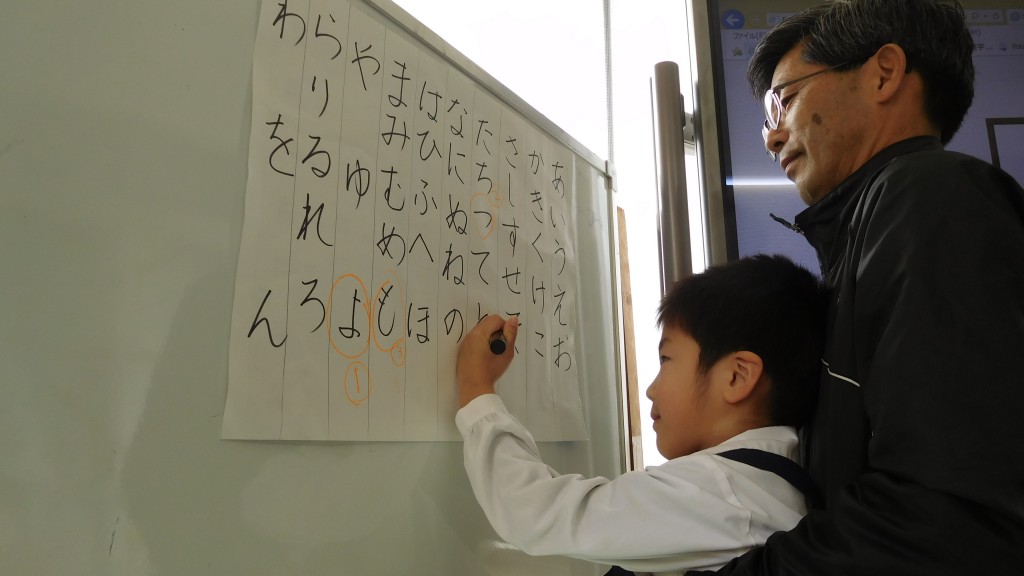 あいうえお
かきくけこ
さしすせ
たちつてと
なにぬねの
はひふへほ
まみむめも
やゆよ
らりるれろ
わをん
①